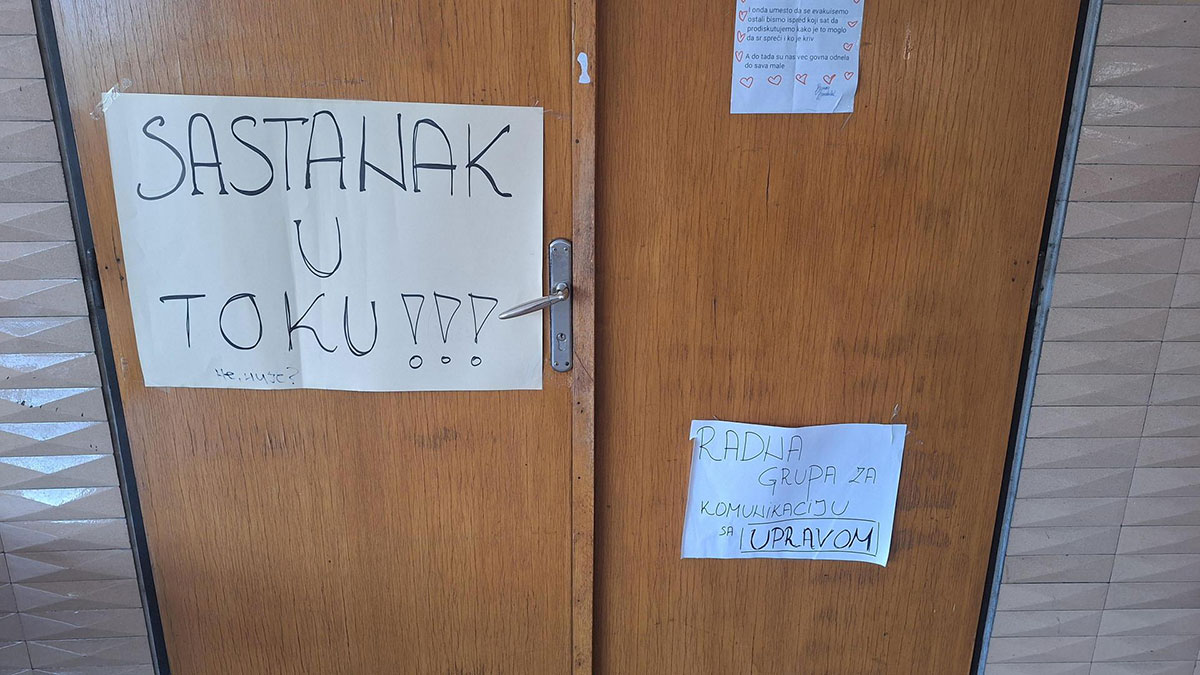 SASTANAK
U
TOKU !!!
не, није?
I onda umesto da se evakuišemo
ostali bismo ispred koji sat da
prodiskutujemo kako je to moglo
da sr spreči i ko je kriv
A do tada su nas već govna odnela
do sava male
RADNA
GRUPA ZA
KOMUNIKACIJU
SA UPRAVOM